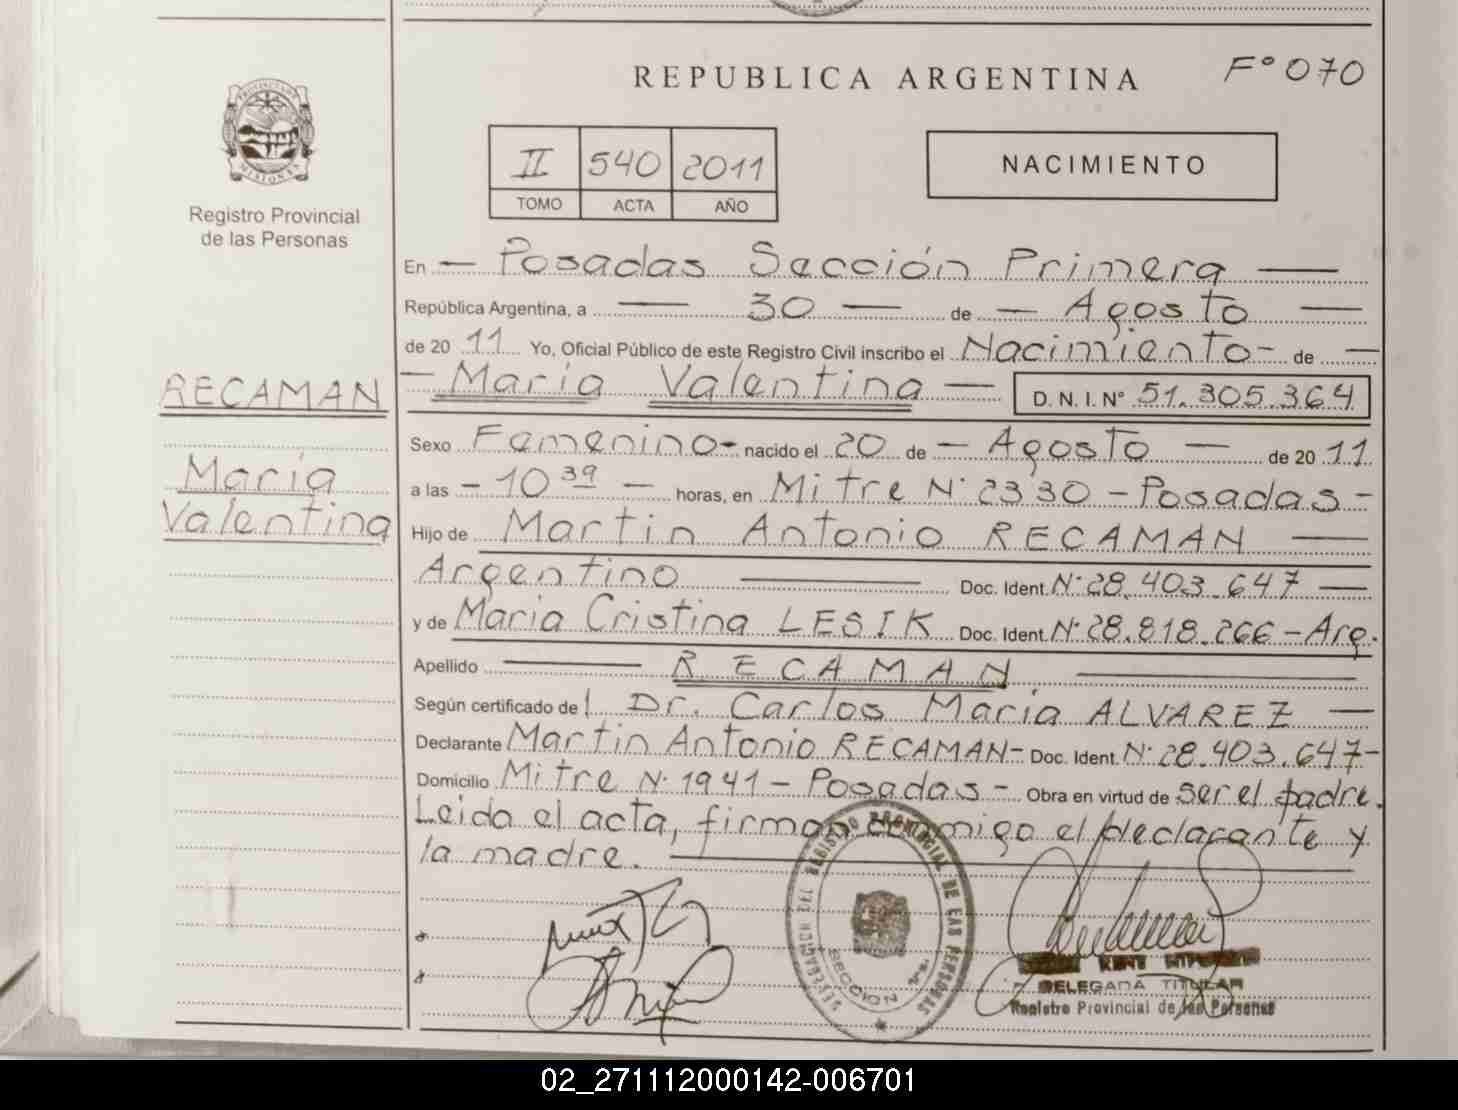 REPUBLICA ARGENTINA
Fº 070
PROVINCIA DE
MISIONES
Registro Provincial
de las Personas
II 540 2011
TOMO ACTA AÑO
NACIMIENTO
En — Posadas Sección Primera —
República Argentina, a — 30 — de — Agosto —
de 20 11 Yo, Oficial Público de este Registro Civil inscribo el Nacimiento - de —
— María Valentina — D. N. I. Nº 51.305.364
RECAMAN
María
Valentina
Sexo Femenino - nacido el 20 de — Agosto — de 20 11
a las - 10 39 — horas, en Mitre Nº 2330 - Posadas -
Hijo de Martin Antonio RECAMAN —
Argentino — Doc. Ident. Nº 28.403.647 —
y de Maria Cristina LESIK Doc. Ident. Nº 28.818.266 - Arg.
Apellido — RECAMAN —
Según certificado del Dr. Carlos María ALVAREZ —
Declarante Martin Antonio RECAMAN - Doc. Ident. Nº 28.403.647 -
Domicilio Mitre Nº 1941 - Posadas - Obra en virtud de ser el padre.
Leida el acta, firman conmigo el declarante y
la madre. —
REGISTRO PROVINCIAL DE LAS PERSONAS
SECCION 1ra.
DELEGADA TITULAR
Registro Provincial de las Personas
02_271112000142-006701